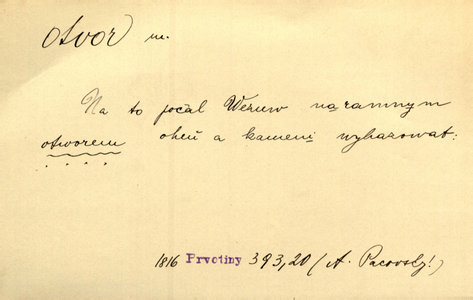 otvor m.
Na to počal Wezuw náramným
otworem oheň a kamení wyhazowat:
1816 Prvotiny 393,20 (A. Pacovský!)